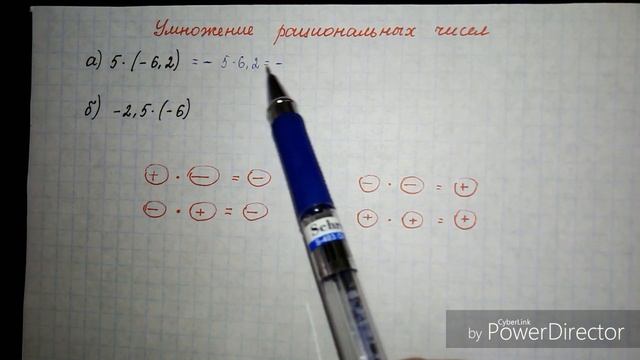 Умножение рациональных чисел
а) 5·(-6,2) = - 5·6,2 = -
б) -2,5·(-6)
+ · - = -
- · - = +
- · + = -
+ · + = +
by CyberLink PowerDirector